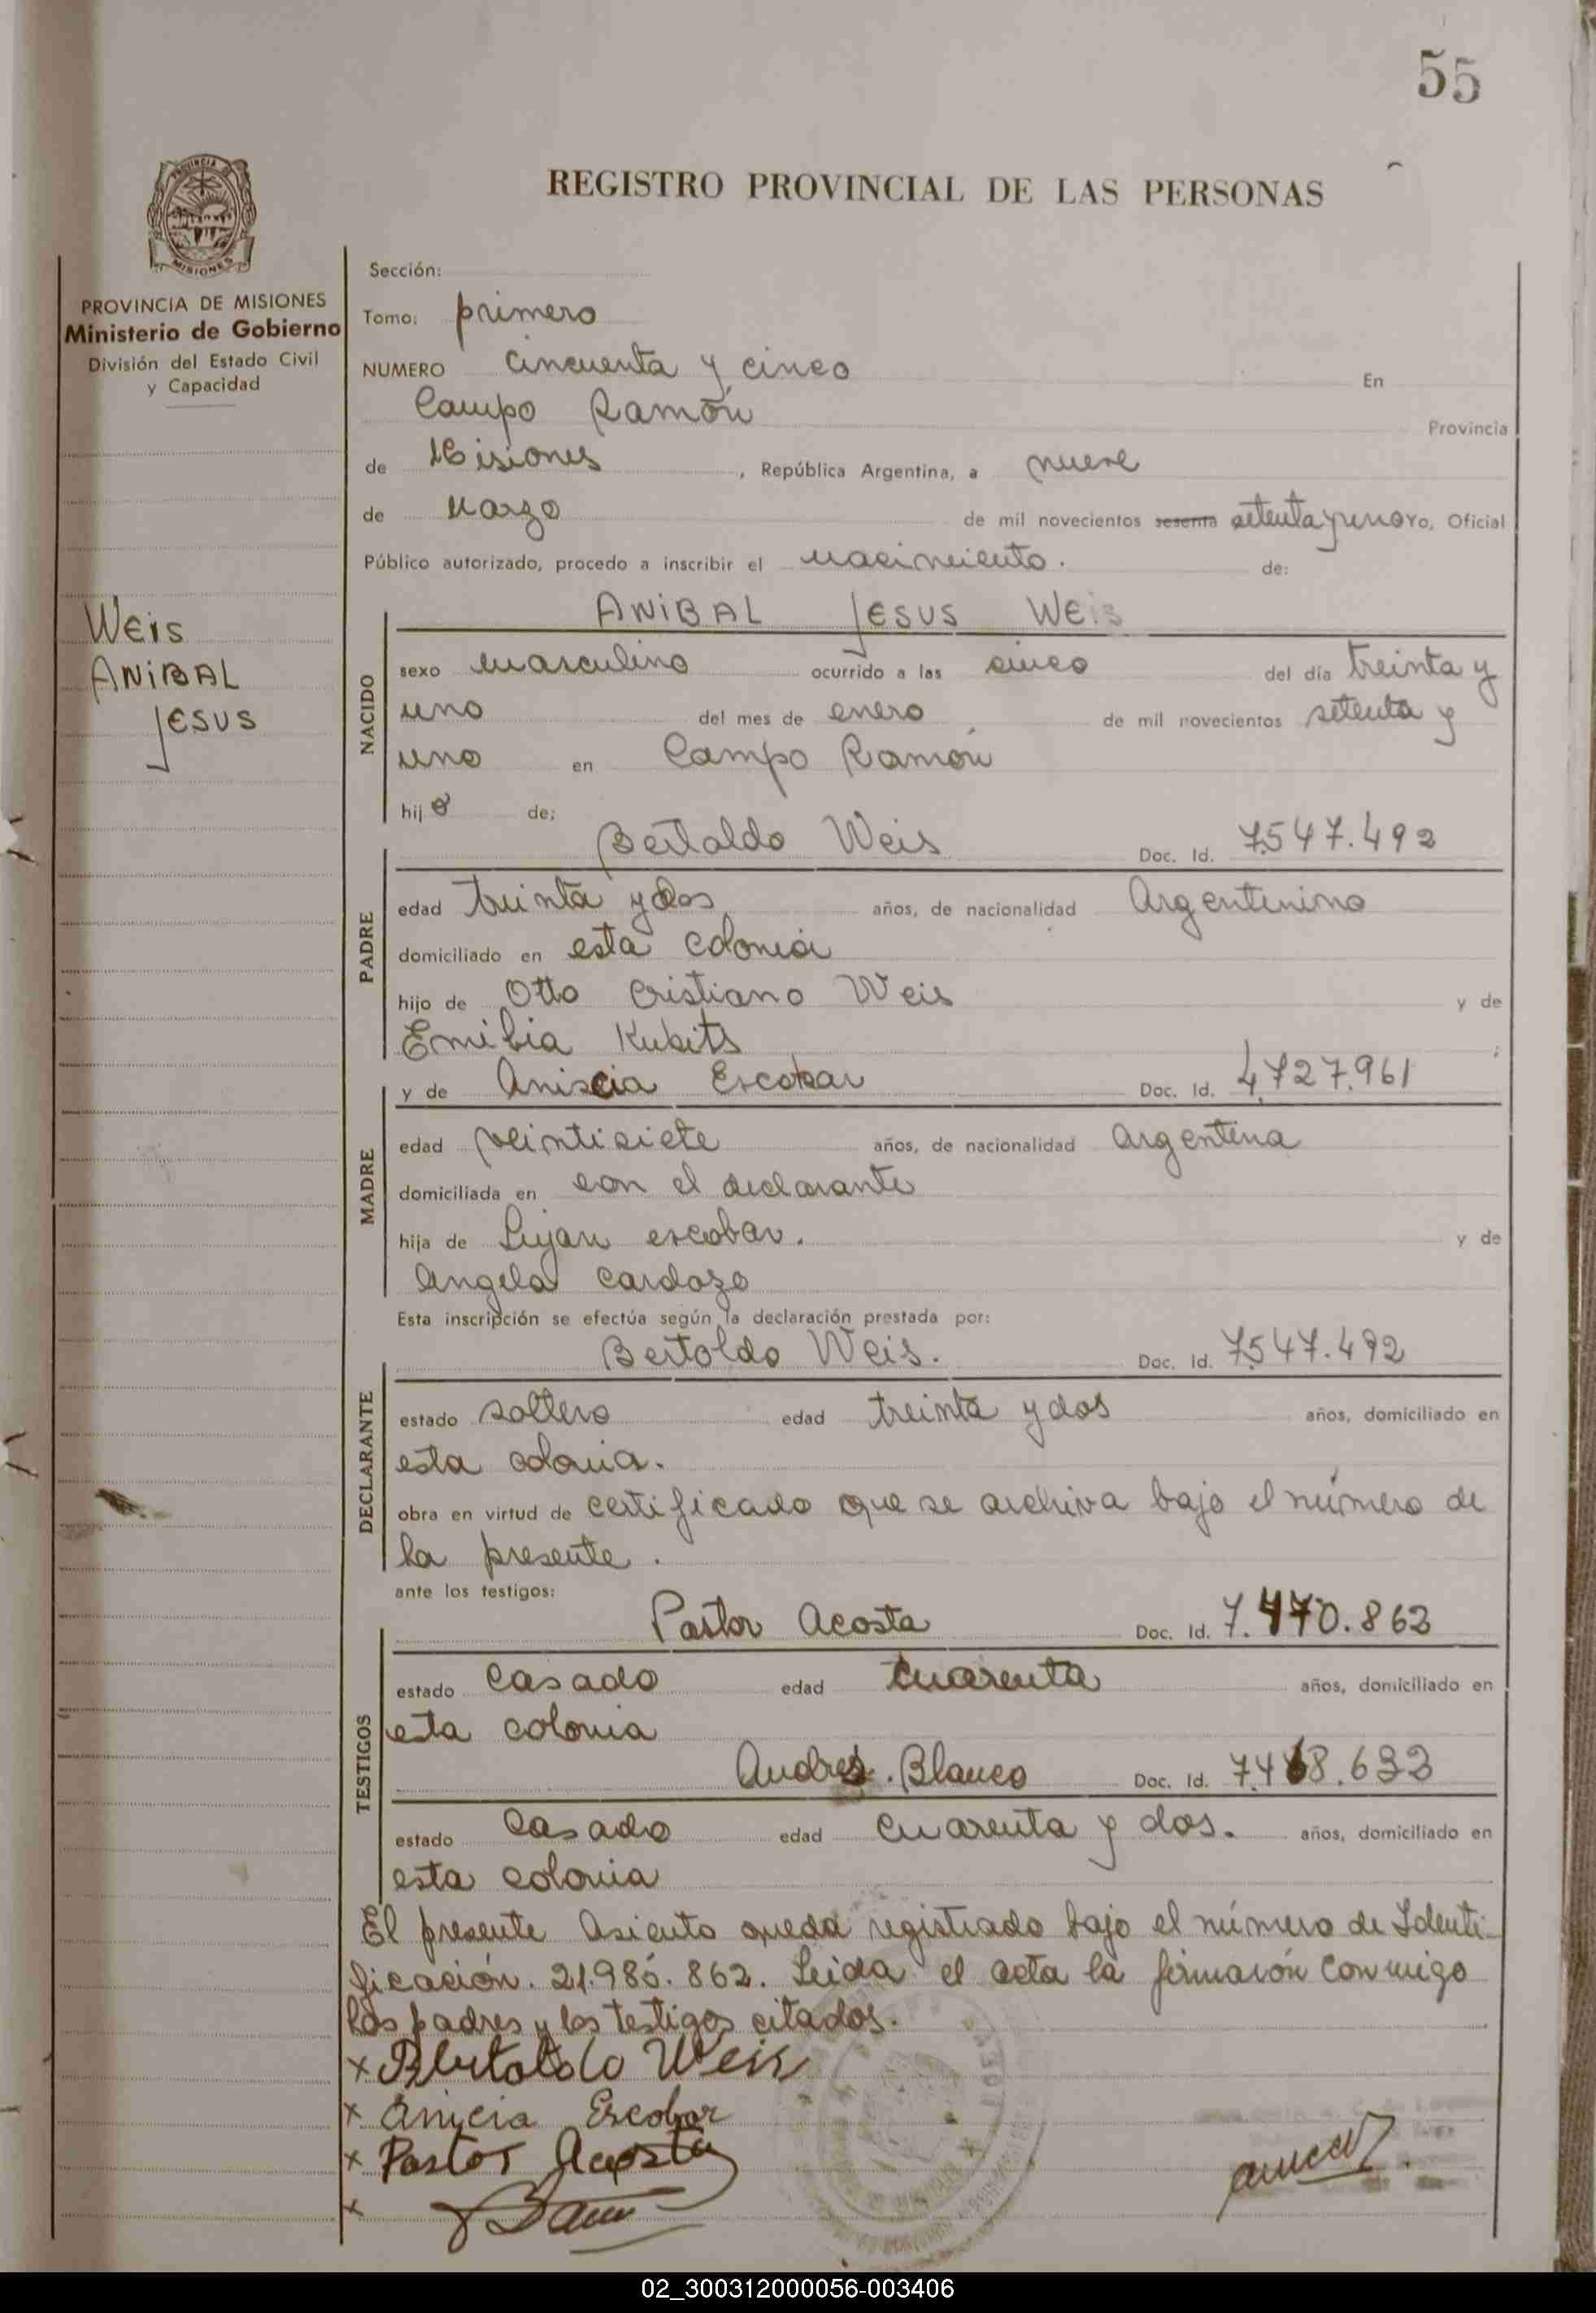 55
REGISTRO PROVINCIAL DE LAS PERSONAS
PROVINCIA
MISIONES
PROVINCIA DE MISIONES
Ministerio de Gobierno
División del Estado Civil
y Capacidad
Weis
ANIBAL
JESUS
Sección:
Tomo: primero
NUMERO cincuenta y cinco En
Campo Ramón Provincia
de Misiones, República Argentina, a nueve
de Marzo de mil novecientos sesenta setenta y uno Yo, Oficial
Público autorizado, procedo a inscribir el nacimiento. de:
ANIBAL JESUS WEIS
NACIDO
sexo masculino ocurrido a las cinco del día treinta y
uno del mes de enero de mil novecientos setenta y
uno en Campo Ramón
hijo de:
Bertoldo Weis Doc. Id. 7.547.492
PADRE
edad treinta y dos años, de nacionalidad Argentinino
domiciliado en esta colonia
hijo de Otto Cristiano Weis y de
Emilia Kubits;
y de Aniscia Escobar Doc. Id. 4.727.961
MADRE
edad veintisiete años, de nacionalidad argentina
domiciliada en con el declarante
hija de Lujan escobar. y de
Angela Cardozo
Esta inscripción se efectúa según la declaración prestada por:
Bertoldo Weis. Doc. Id. 7.547.492
DECLARANTE
estado soltero edad treinta y dos años, domiciliado en
esta colonia.
obra en virtud de certificado que se archiva bajo el número de
la presente.
ante los testigos:
Pastor Acosta Doc. Id. 7.470.863
TESTIGOS
estado Casado edad cuarenta años, domiciliado en
esta colonia
Andres. Blanco Doc. Id. 7.468.633
estado Casado edad cuarenta y dos. años, domiciliado en
esta colonia
El presente Asiento queda registrado bajo el número de Identi-
ficación. 21.980.862. Leida el acta la firmarón conmigo
los padres y los testigos citados.
x Bertoldo Weis
x Anicia Escobar
x Pastor Acosta
x
02_300312000056-003406